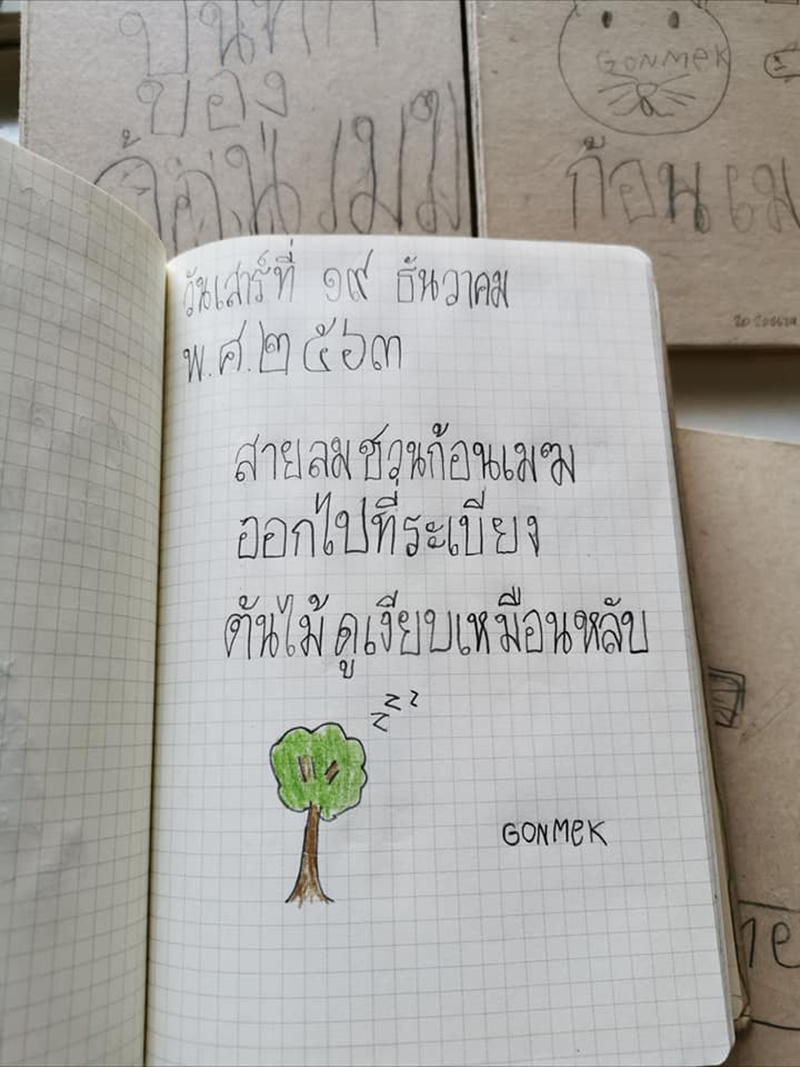 บันทึก
ของ
ก้อนเมฆ
GONMEK
ก้อนเม
วันเสาร์ที่ ๑๙ ธันวาคม
พ.ศ.๒๕๖๓
สายลมชวนก้อนเมฆ
ออกไปที่ระเบียง
ต้นไม้ดูเงียบเหมือนหลับ
zzz
GONMEK